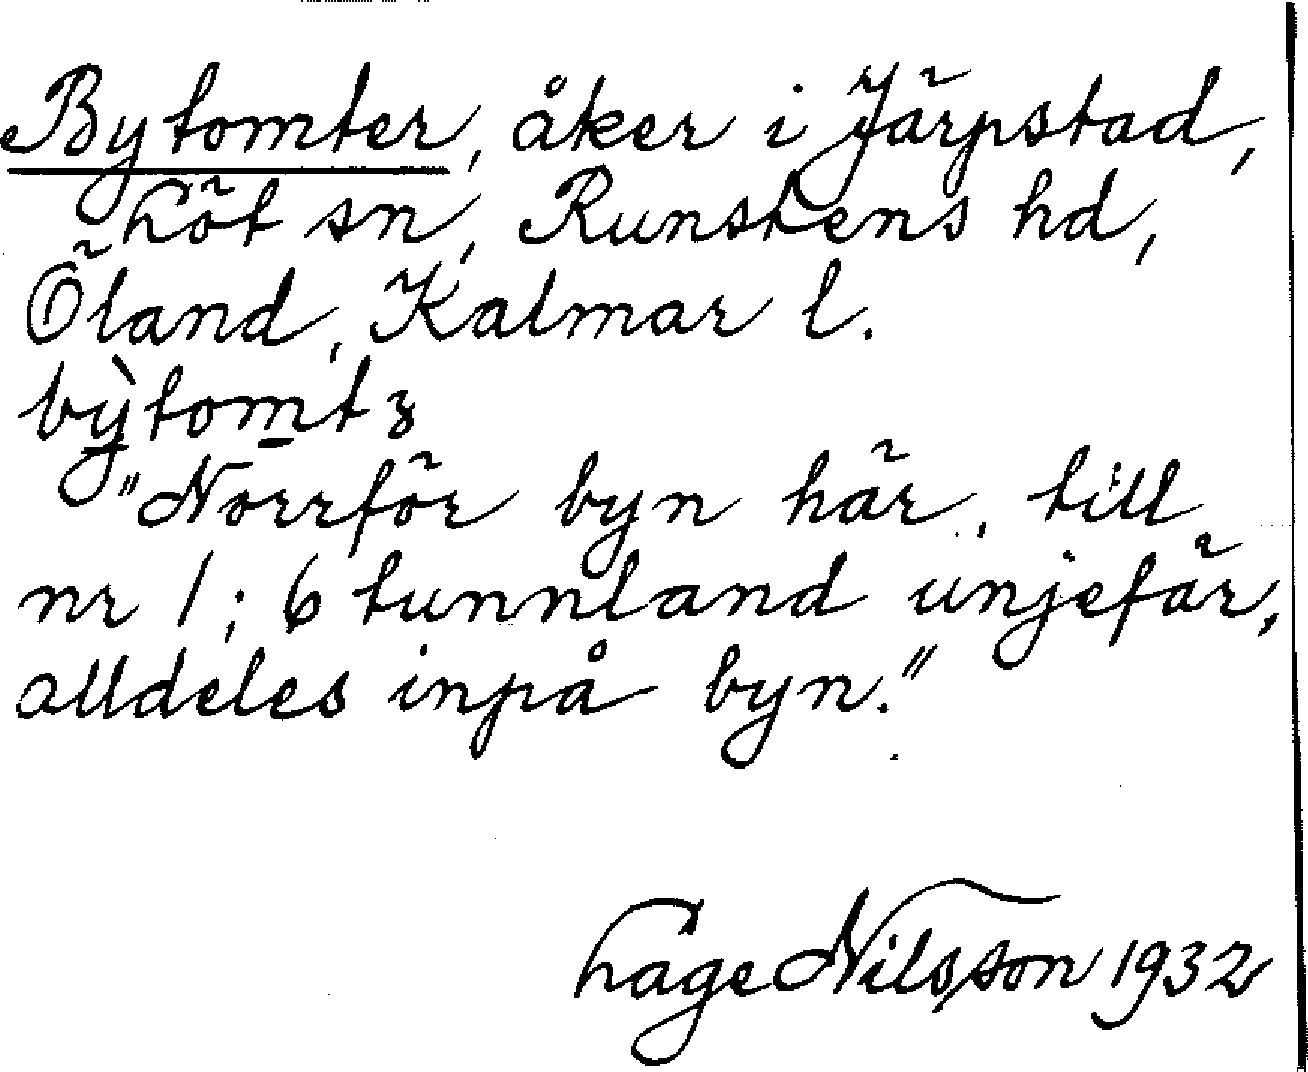 Bytomter, åker i Järpstad,
Löt sn, Runstens hd,
Öland, Kalmar l.
bỳ̱tom̱tz
"Norrför byn här, till
nr 1; 6 tunnland unjefär,
alldeles inpå byn."
Lage Nilsson 1932